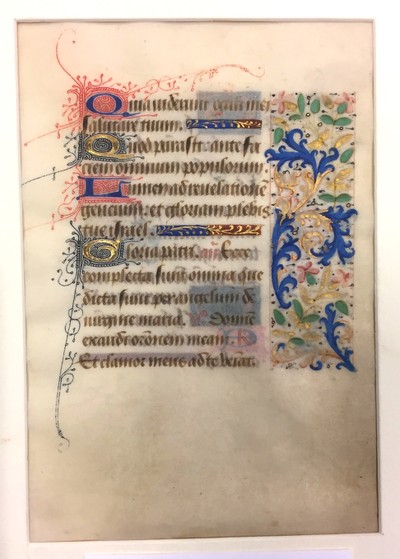 Quia viderunt oculi mei
salutare tuum.
Quod parasti: ante fa
ciem omnium populorum.
Lumen ad revelatione
gencium: et gloriam plebis
tue israel.
Gloria patri. Ecce
completa sunt omnia que
dicta sunt per angelum de
virgine maria. Domine
exaudi oronem meam.
Et clamor meus ad te veiat.